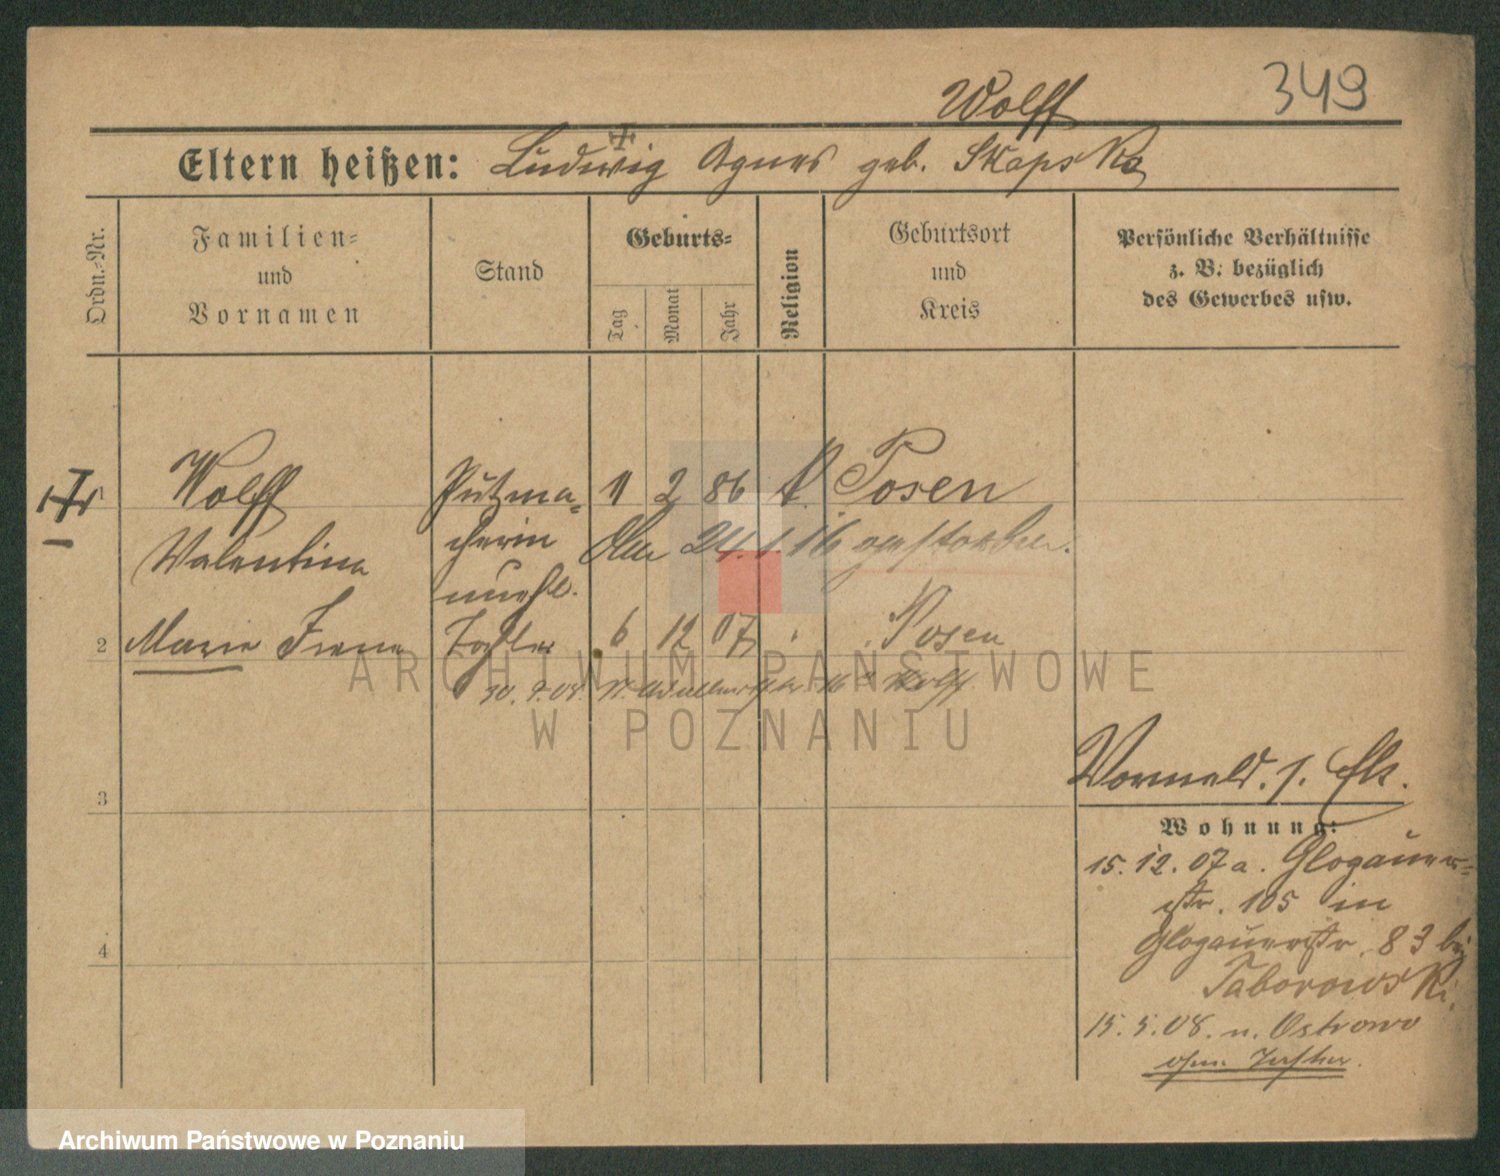 Wolff 349
Eltern heißen: Ludwig Agnes geb. Skapska
Ordn.-Nr.
Familien-
und
Vornamen
Stand
Geburts-
Tag
Monat
Jahr
Religion
Geburtsort
und
Kreis
Persönliche Verhältnisse
z. B. bezüglich
des Gewerbes usw.
1 Wolff Putzma- 11 2 86 k. Posen
Valentina cherin Am 24.1.16 gestorben.
unehl.
2 Marie Irene Tochter 6 12 07 Posen
30. 9. 08. Wolff
ARCHIWUM PAŃSTWOWE
W POZNANIU
3
4
Wohnung:
15. 12. 07 a. Glogauer-
str. 105 in
Glogauerstr. 83 bei
Taborowski.
15. 5. 08. n. Ostrowo
ohne Tochter.
Archiwum Państwowe w Poznaniu